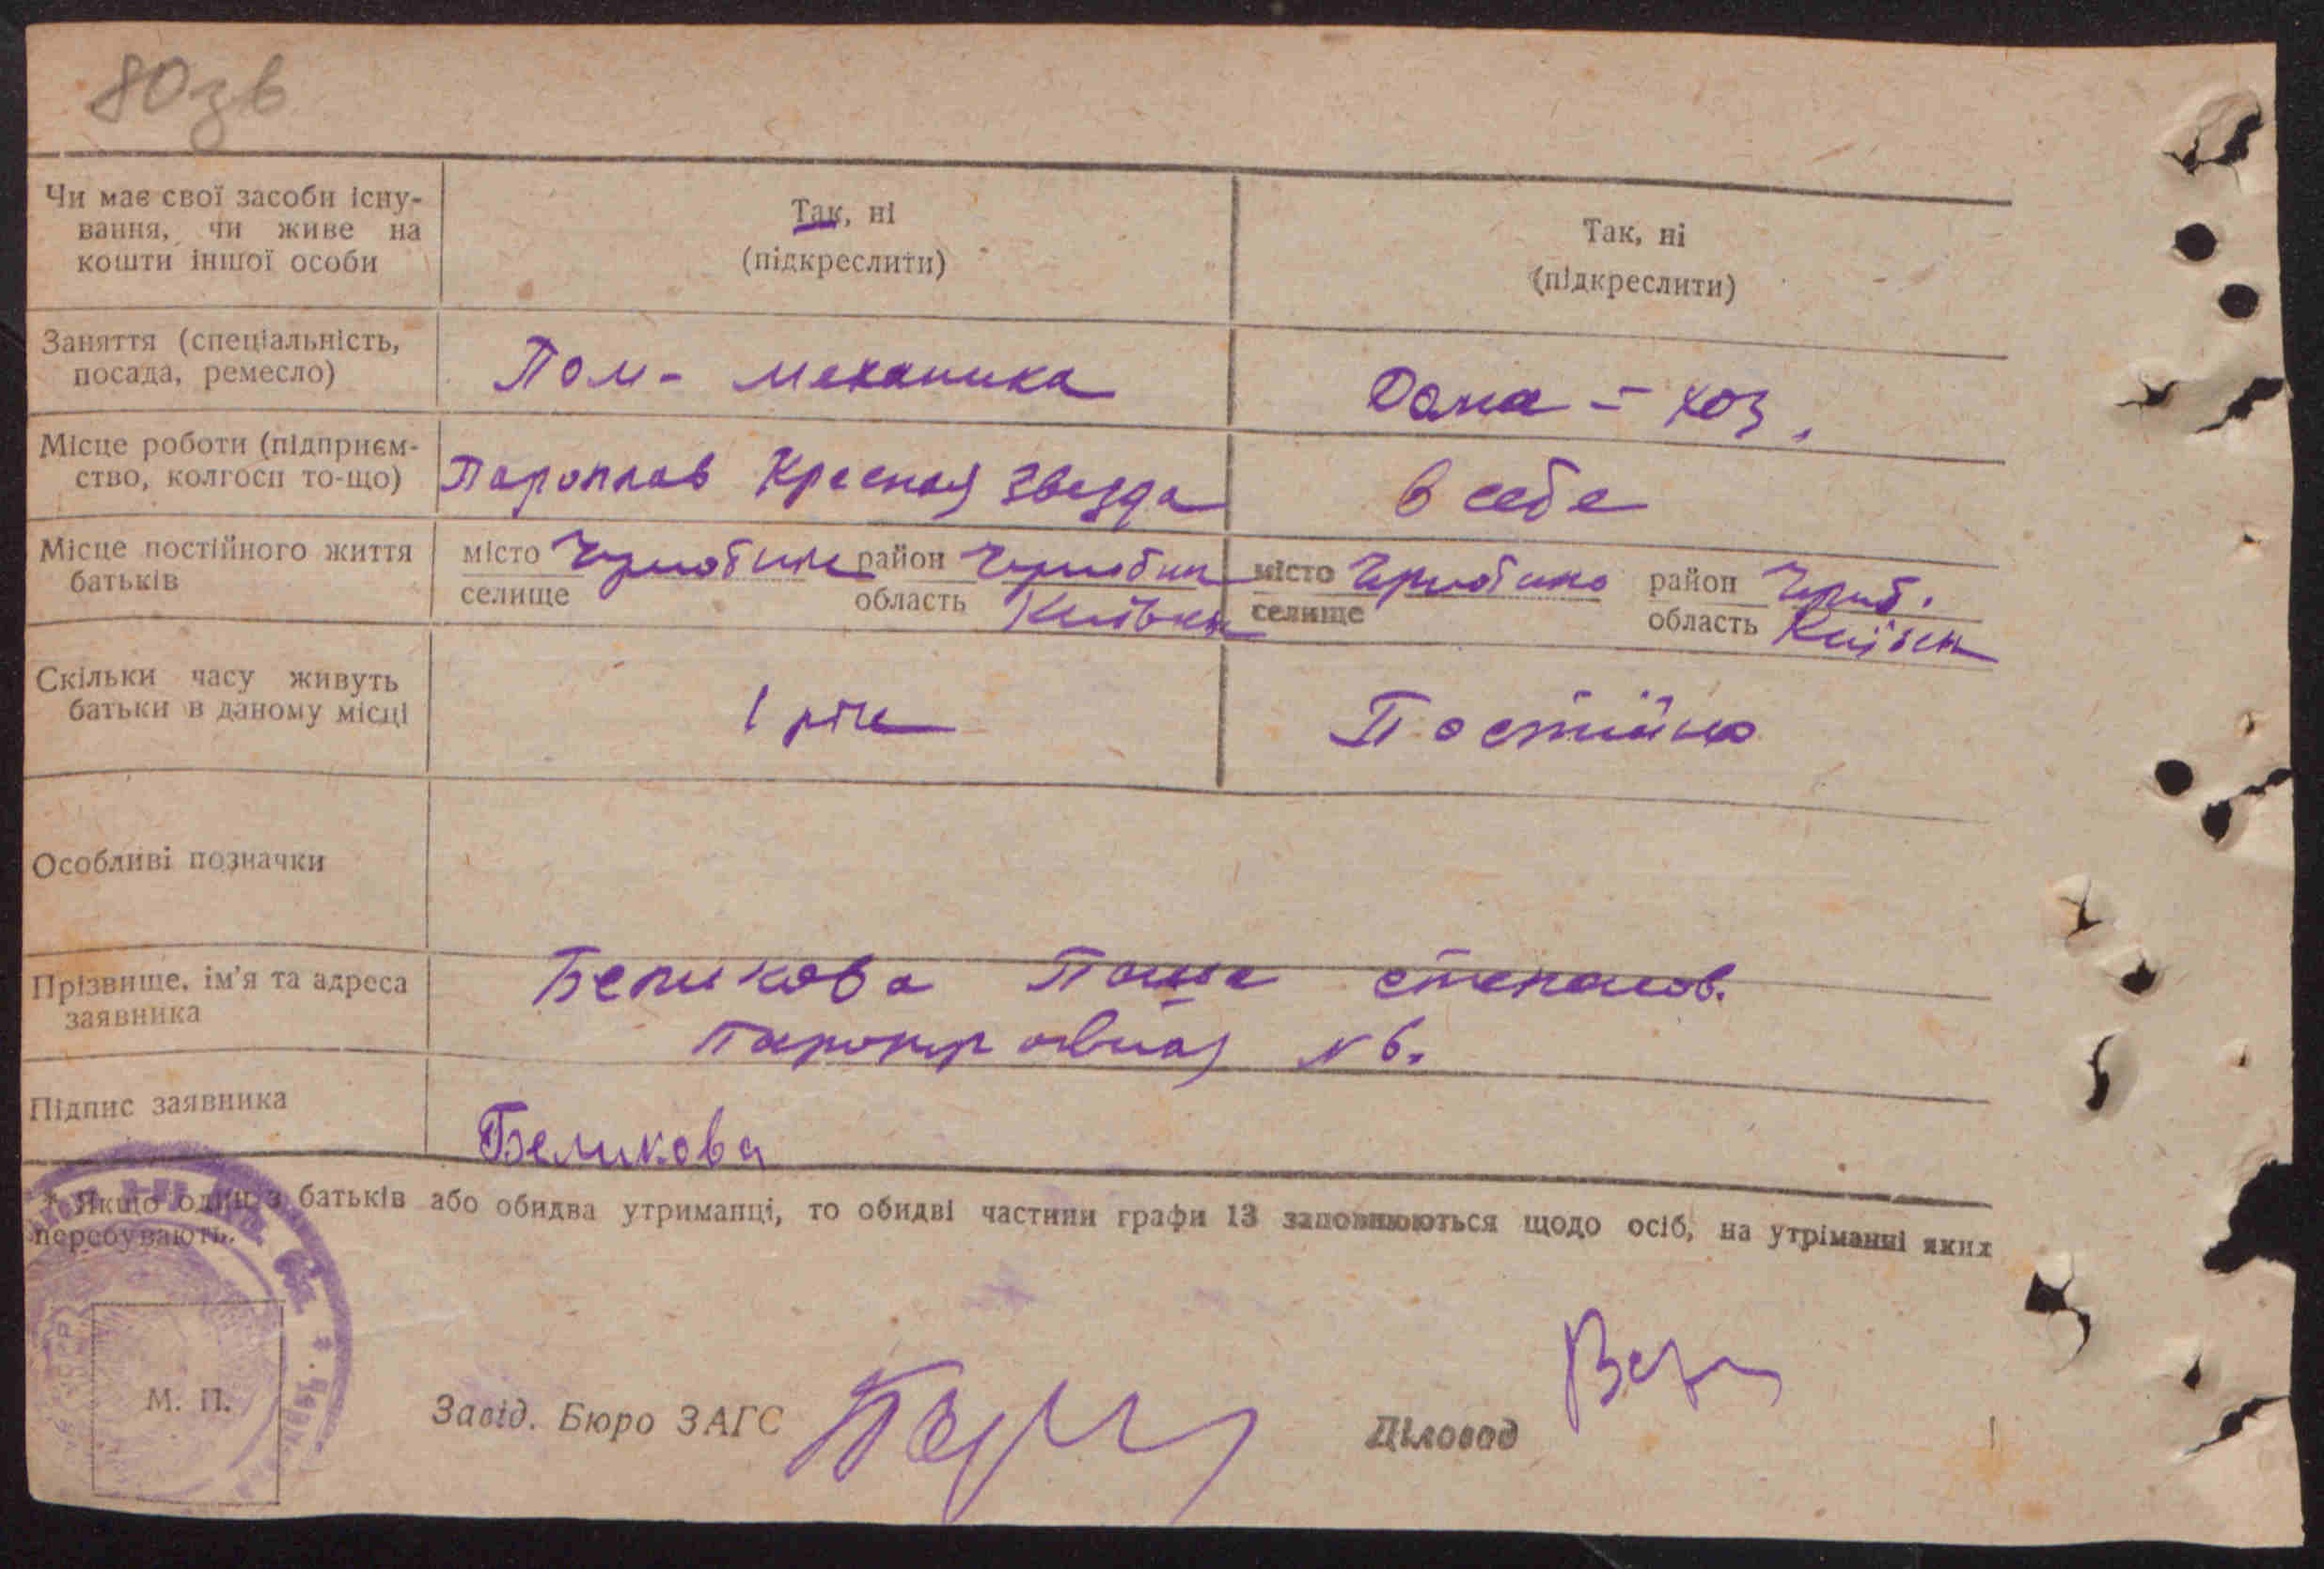 80зв
Чи має свої засоби існу-
вання, чи живе на
кошти іншої особи
Так, ні
(підкреслити)
Так, ні
(підкреслити)
Заняття (спеціальність,
посада, ремесло)
Пом- механика
Дома - хоз.
Місце роботи (підприєм-
ство, колгосп то-що)
Пароплав Красная звезда
в себе
Місце постійного життя
батьків
місто Чорнобиль район Чорнобил
селище область Київськ
місто Чорнобиль район Чорноб.
селище область Київськ
Скільки часу живуть
батьки в даному місці
1 рік
Постійно
Особливі позначки
Прізвище, ім'я та адреса
заявника
Беликова Паша степанов.
№ 6.
Підпис заявника
Беликова
* Якщо один з батьків або обидва утриманці, то обидві частини графи 13 заповнюються щодо осіб, на утріманні яких
перебувають.
М. П.
Завід. Бюро ЗАГС
Діловод